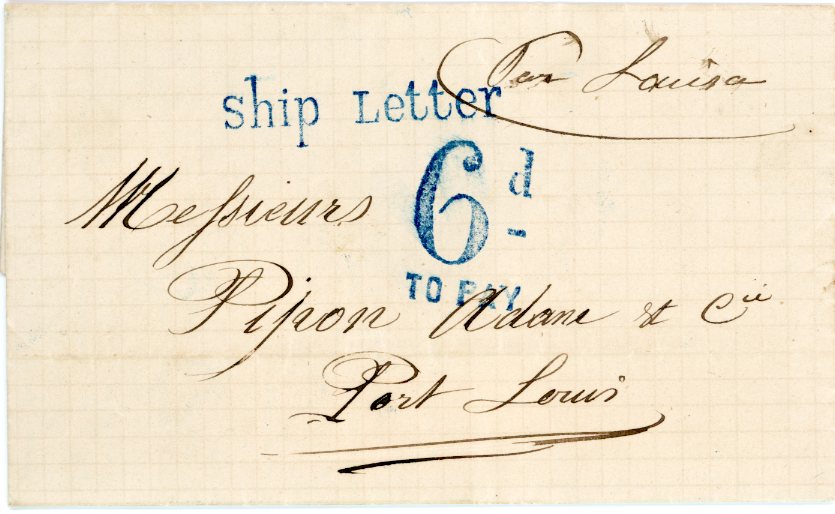 Par Louisa
Ship Letter
6d
TO PAY
Messieurs
Pipon Adam & Cie
Port Louis